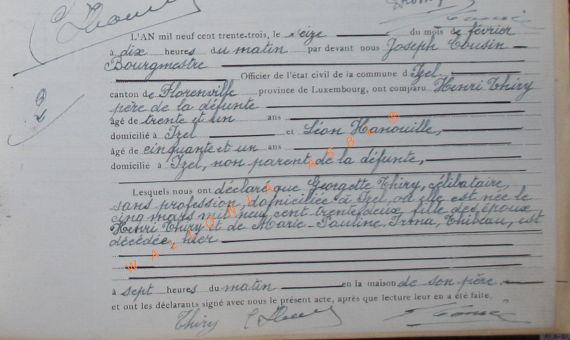 L'AN mil neuf cent trente-trois, le seize du mois de février
à dix heures du matin par devant nous Joseph Cousin
Bourgmestre
Officier de l'état civil de la commune d'Izel,
canton de Florenville province de Luxembourg, ont comparu Henri Thiry
père de la défunte
âgé de trente et un ans
domicilié à Izel et Léon Hanouille,
âgé de cinquante et un ans
domicilié à Izel, non parent de la défunte,
Lesquels nous ont déclaré que Georgette Thiry, célibataire,
sans profession, domiciliée à Izel, où elle est née le
cinq mars mil neuf cent trente deux, fille des époux
Henri Thiry et de Marie Pauline Irma, Thibeau, est
décédée, hier
à sept heures du matin en la maison de son père.
et ont les déclarants signé avec nous le présent acte, après que lecture leur en a été faite.
Thiry
2